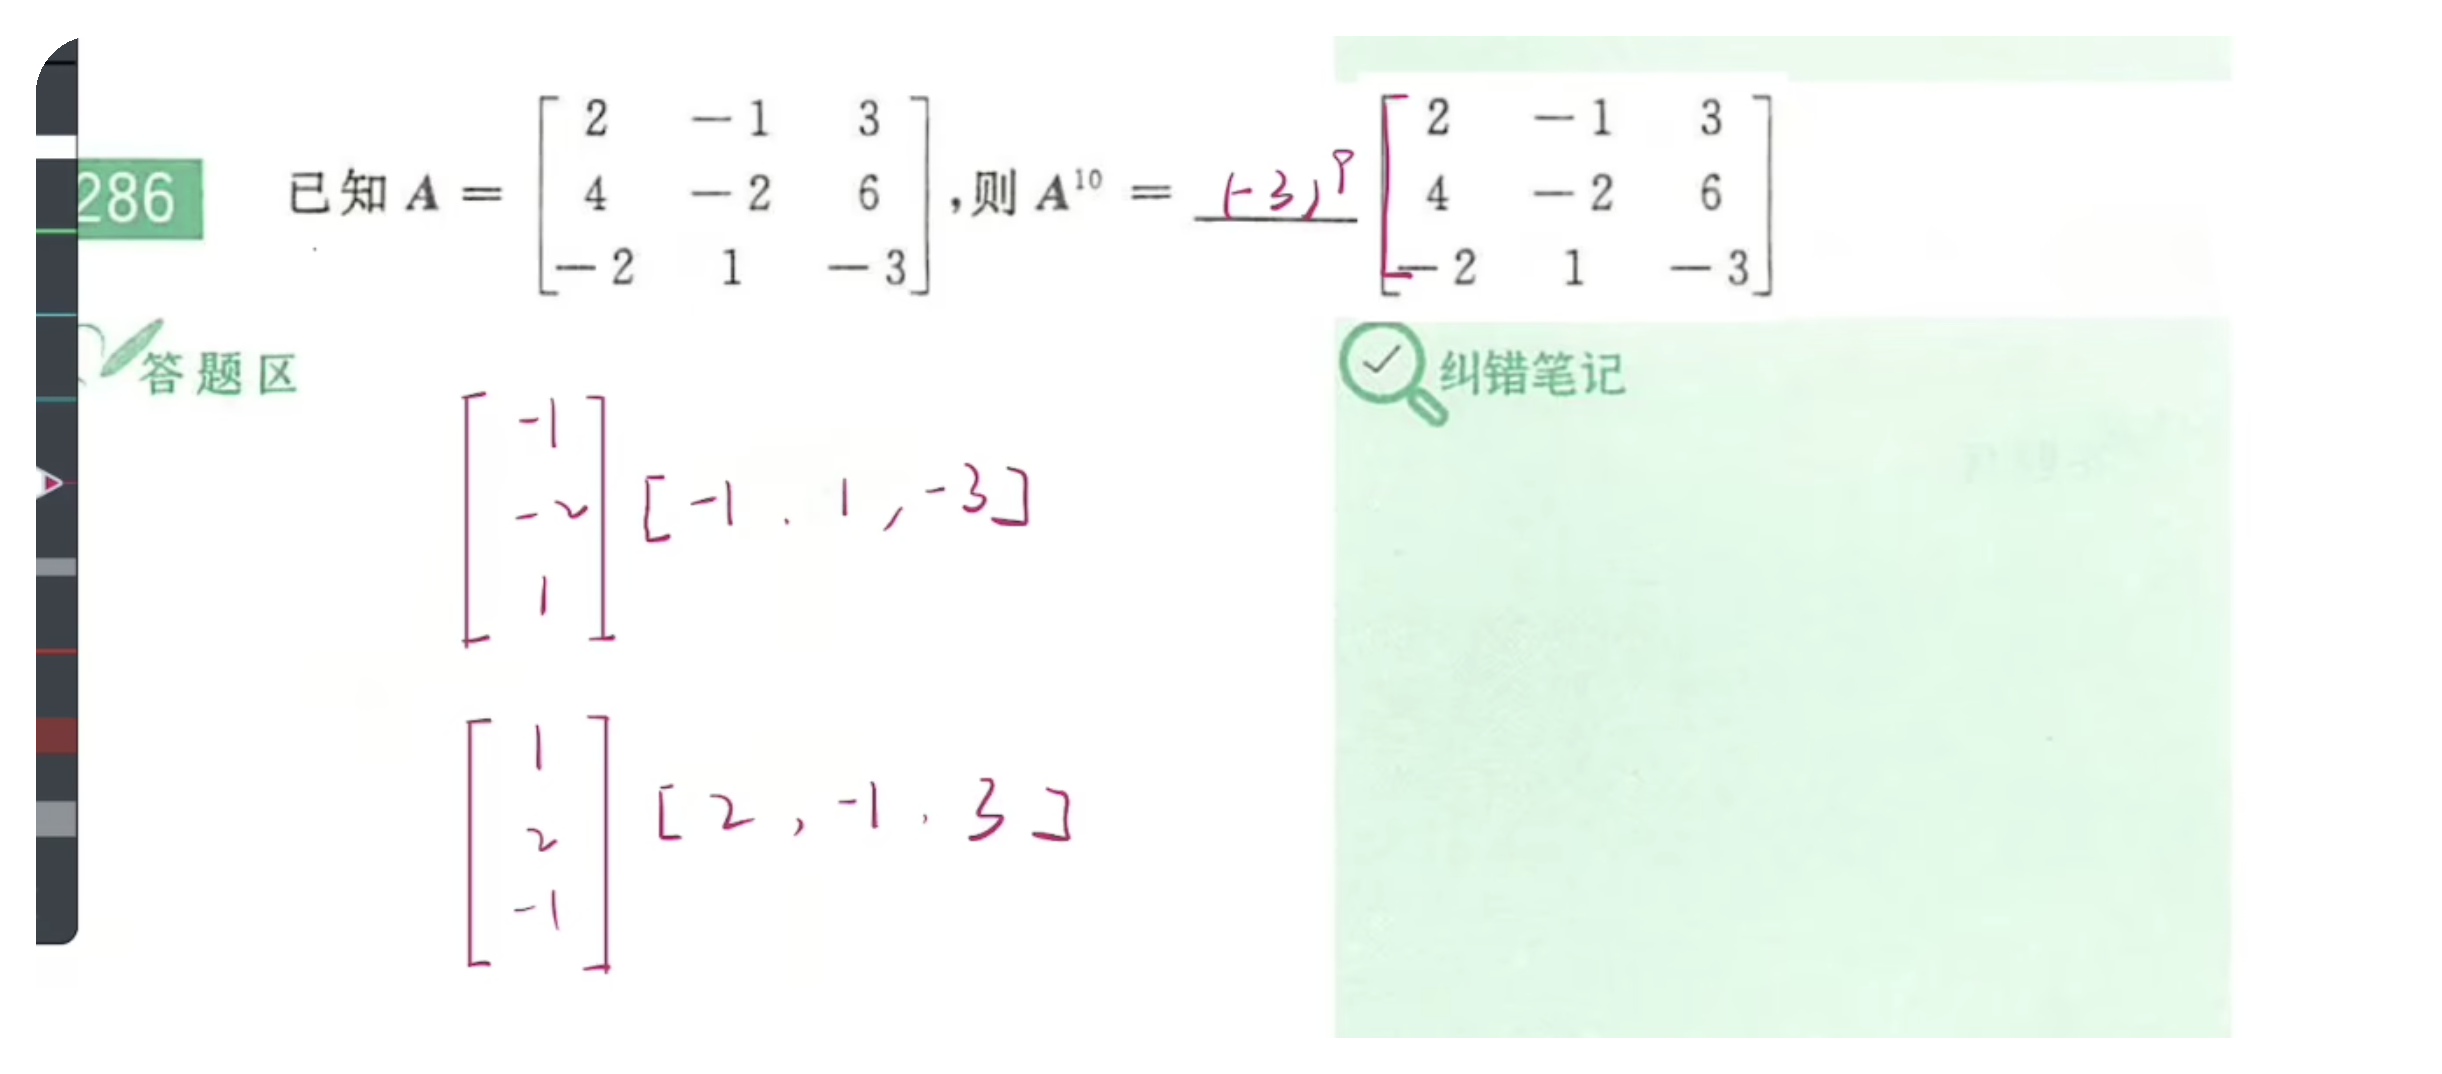 286 已知 A = [2 -1 3; 4 -2 6; -2 1 -3], 则 A¹⁰ = (-3)⁹ [2 -1 3; 4 -2 6; -2 1 -3]
答题区
纠错笔记
[-1; -2; 1] [-1, 1, -3]
[1; 2; -1] [2, -1, 3]